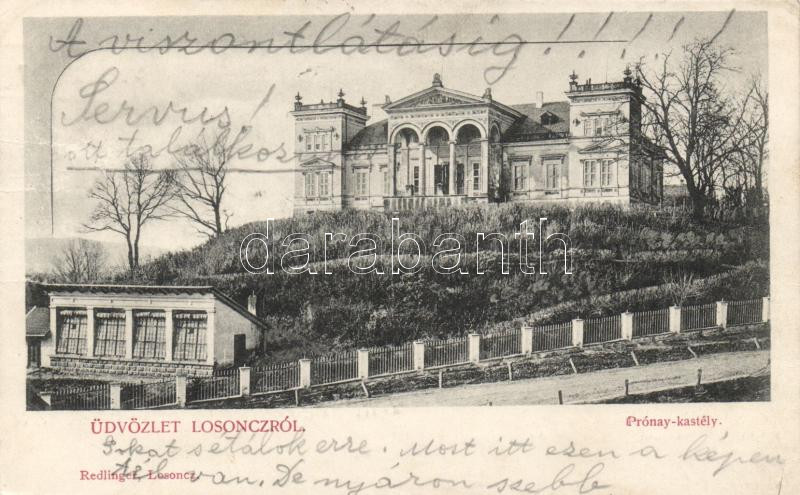 A viszontlátásig!!!!!!
Servus!
ott találkoz
darabanth
ÜDVÖZLET LOSONCZRÓL.
Prónay-kastély.
sokat sétálok erre. Most itt ezen a képen
Redlinger, Losoncz.
tél van. De nyáron szebb